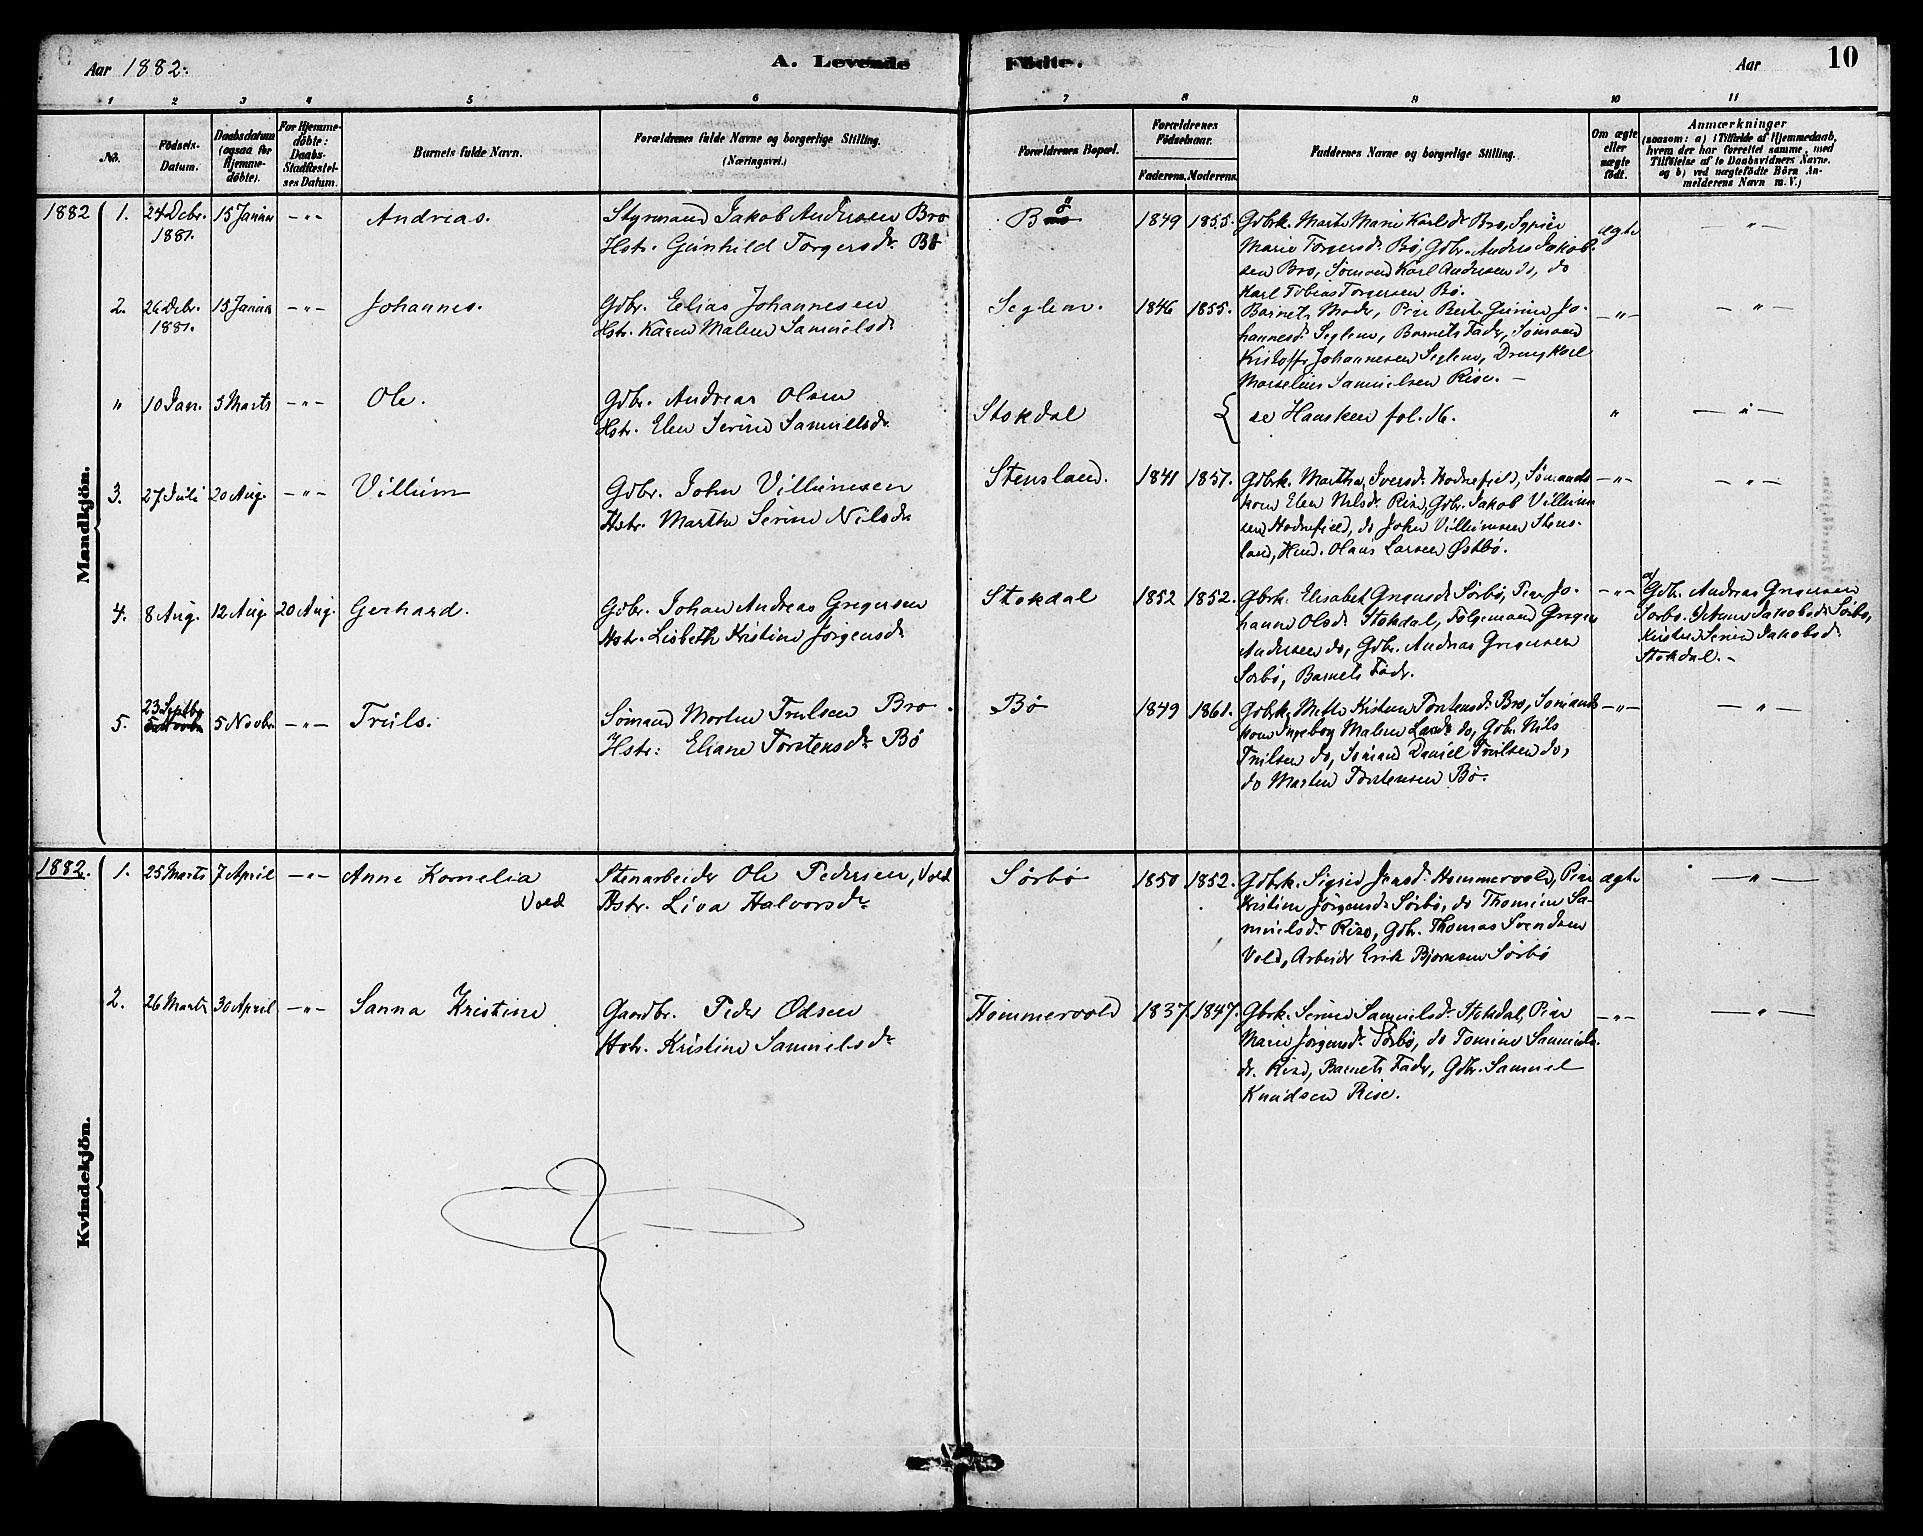 Aar 1882.
A. Levende Födte.
Aar
10
1 2 3 4 5 6 7 8 9 10 11
No.
Födsels-
Datum.
Daabsdatum
(ogsaa for
Hjemme-
döbte).
For Hjemme-
döbte:
Daabs-
Stadfæstel-
ses Datum.
Barnets fulde Navn.
Forældrenes fulde Navne og borgerlige Stilling.
(Næringsvei.)
Forældrenes Bopæl.
Forældrenes
Födselsaar.
Faderens. Moderens.
Faddernes Navne og borgerlige Stilling.
Om ægte
eller
uægte
födt.
Anmærkninger
(saasom: a) i Tilfælde af Hjemmedaab,
hvem der har forrettet samme, med
Tilföielse af to Daabsvidners Navne.
og b) ved uægtefödte Börn An-
melderens Navn m. V.)
Mandkjön.
1882
1. 24 Debr. 1881. 15 Januar -"- Andreas.
Styrmand Jakob Andersen Bro
Hstr. Gunhild Torgersdr. Bø
Bø 1849 1855.
Gdbrk. Marte Marie Karlsdr Bro, Sypie
Marie Torgersdr. Bø, Gdbr. Anders Jakob-
sen Bro, Sømand Karl Andersen do, do
Karl Tobias Torgersen Bø.
ægte -"-
2. 26 Debr. 1881. 15 Januar -"- Johannes.
Gdbr. Elias Johannesen
Hstr. Karen Malene Samuelsdr
Seglem. 1846 1855.
Barnets Moder, Pie Berte Gurine Jo-
hannesdr Seglem, Barnets Fader, Sømand
Kristoffer Johannesen Seglem, Dreng Karl
Marselius Samuelsen Rise. -
-"- -"-
" 10 Jan. 5 Marts -"- Ole.
Gdbr. Andreas Olsen
Hstr. Elen Serine Samuelsdr.
Stokdal
se Hausken fol. 16.
" -"-
3. 27 Juli 20 Aug. -"- Villum
Gdbr. John Villumsen
Hstr. Marthe Serine Nilsdr
Stensland. 1841 1857.
Gdbrk. Martha Iversdr. Hodnefjeld, Sømands-
kone Elen Nilsdr. Rise, Gdbr. Jakob Villum
sen Hodnefjeld, do John Villumsen Stens-
land, Olaus Larsen Østbø.
-"- -"-
4. 8 Aug. 12 Aug 20 Aug. Gerhard.
Gdbr. Johan Andreas Gregersen
Hstr. Lisbeth Kristine Jørgensdr
Stokdal 1852 1852.
Gbrk. Elisabet Gregersdr Sørbø, Pie Jo-
hanne Olsdr Stokdal, Følgemand Greger
Andersen do, Gdbr. Andreas Gregersen
Sørbø, Barnets Fader.
-"-
a/ Gdbr. Andreas Gregersen
Sørbø. Anne Jakobsdr Sørbø,
Kirsten Serine Jakobsdr
Stokdal. -
5. 23 Septbr 5 Novbr. -"- Truls.
Sømand Morten Trulsen Bro.
Hstr: Eliane Torstensdr. Bø
Bø 1849 1861.
Gdbrk. Mette Kirstine Torstensdr. Bro, Sømands-
kone Ingeborg Malene Larsdr do, Gdbr. Nils
Trulsen do, Sømand Daniel Trulsen do,
do Marten Torstensen Bø.
-"- -"-
Kvindekjön.
1882.
1. 25 Marts 7 April -"- Anne Kornelia
Vold
Stenarbeider Ole Pedersen, Vold
Hstr. Liva Halvorsdr
Sørbø 1850 1852.
Gdbrk. Sigrid Jensdr. Hommervold, Pie
Kristine Jørgensdr Sørbø, do Thomine Sa-
muelsdr. Rise, Gdbr. Thomas Svendsen
Vold, Arbeider Erik Bjørnsen Sørbø
ægte -"-
2. 26 Marts 30 April -"- Sanna Kristine
Gaardbr. Peder Odsen
Hstr. Kristine Samuelsdr
Hommervold 1837 1847.
Gbrk. Serine Samuelsdr. Stokdal, Pie
Marie Jørgensdr. Sørbø, do Tomine Samuels-
dr. Rise, Barnets Fader, Gdbr. Samuel
Knudsen Rise.
-"- -"-